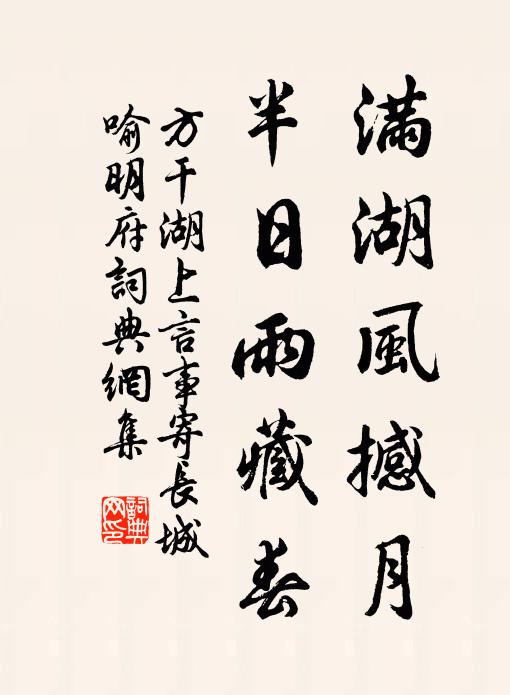 滿湖風撼月
半日雨藏春
方干湖上言事寄長城
喻明府詞典網集
詞典
网印